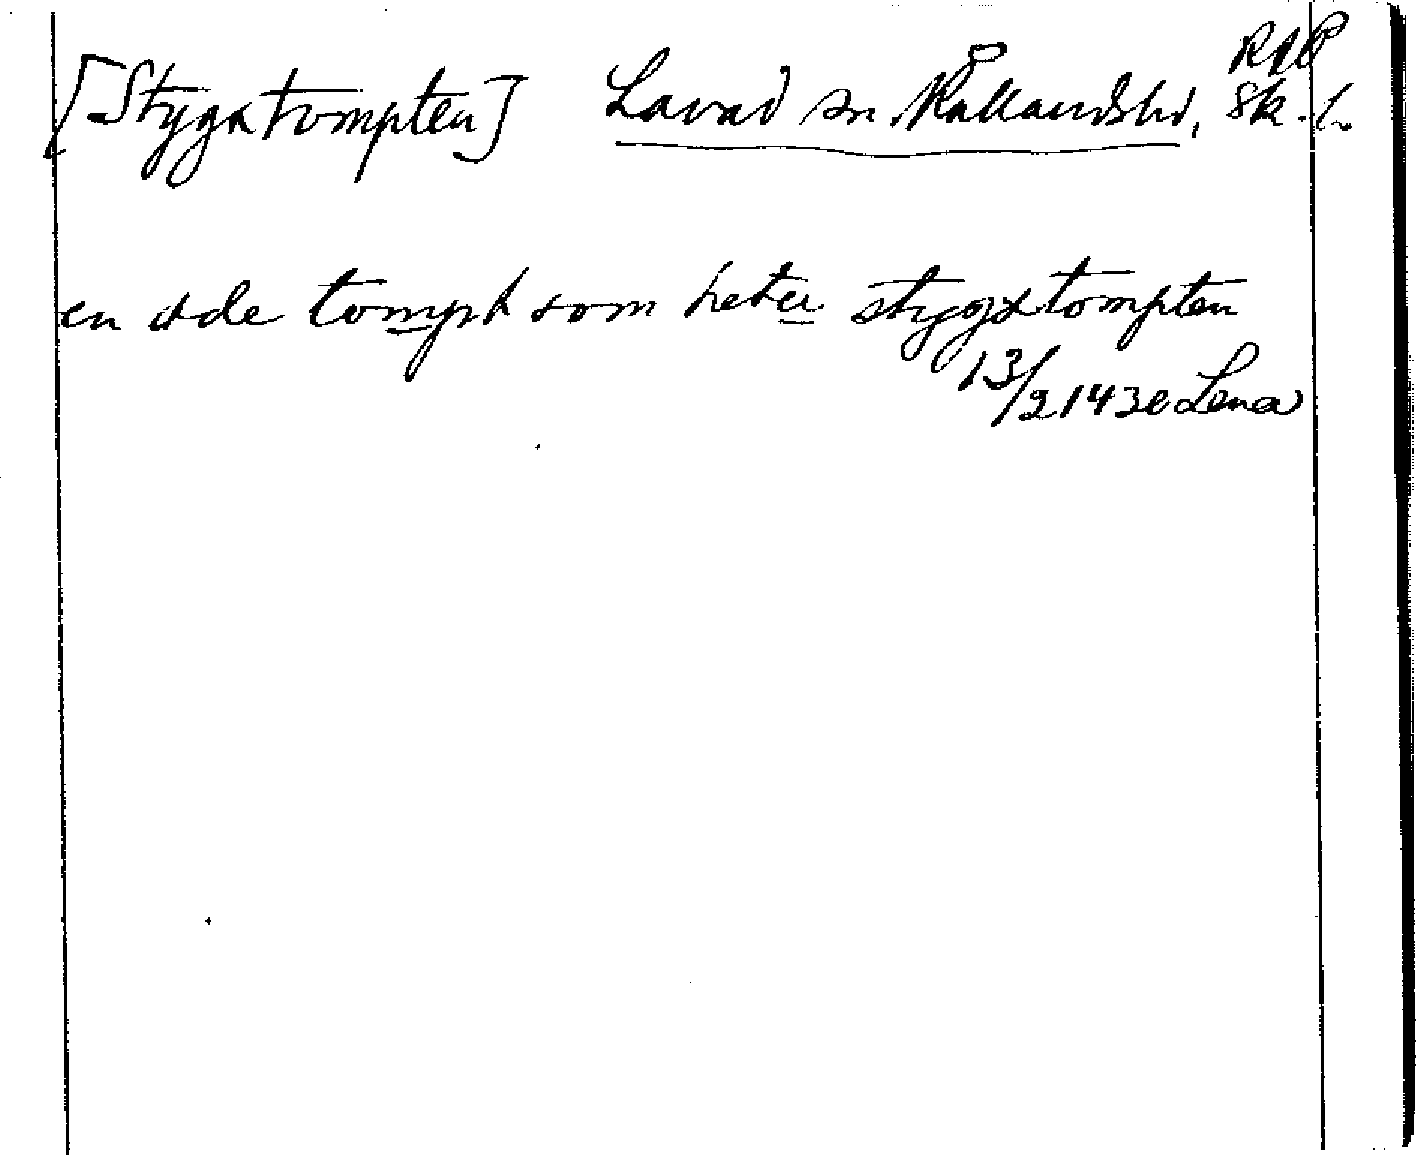 RAP
[Stygxtompten] Lavad sn. Kållandshd, Sk.l.
en øde tompt som heter stygxtompten
13/2 1430 Lena